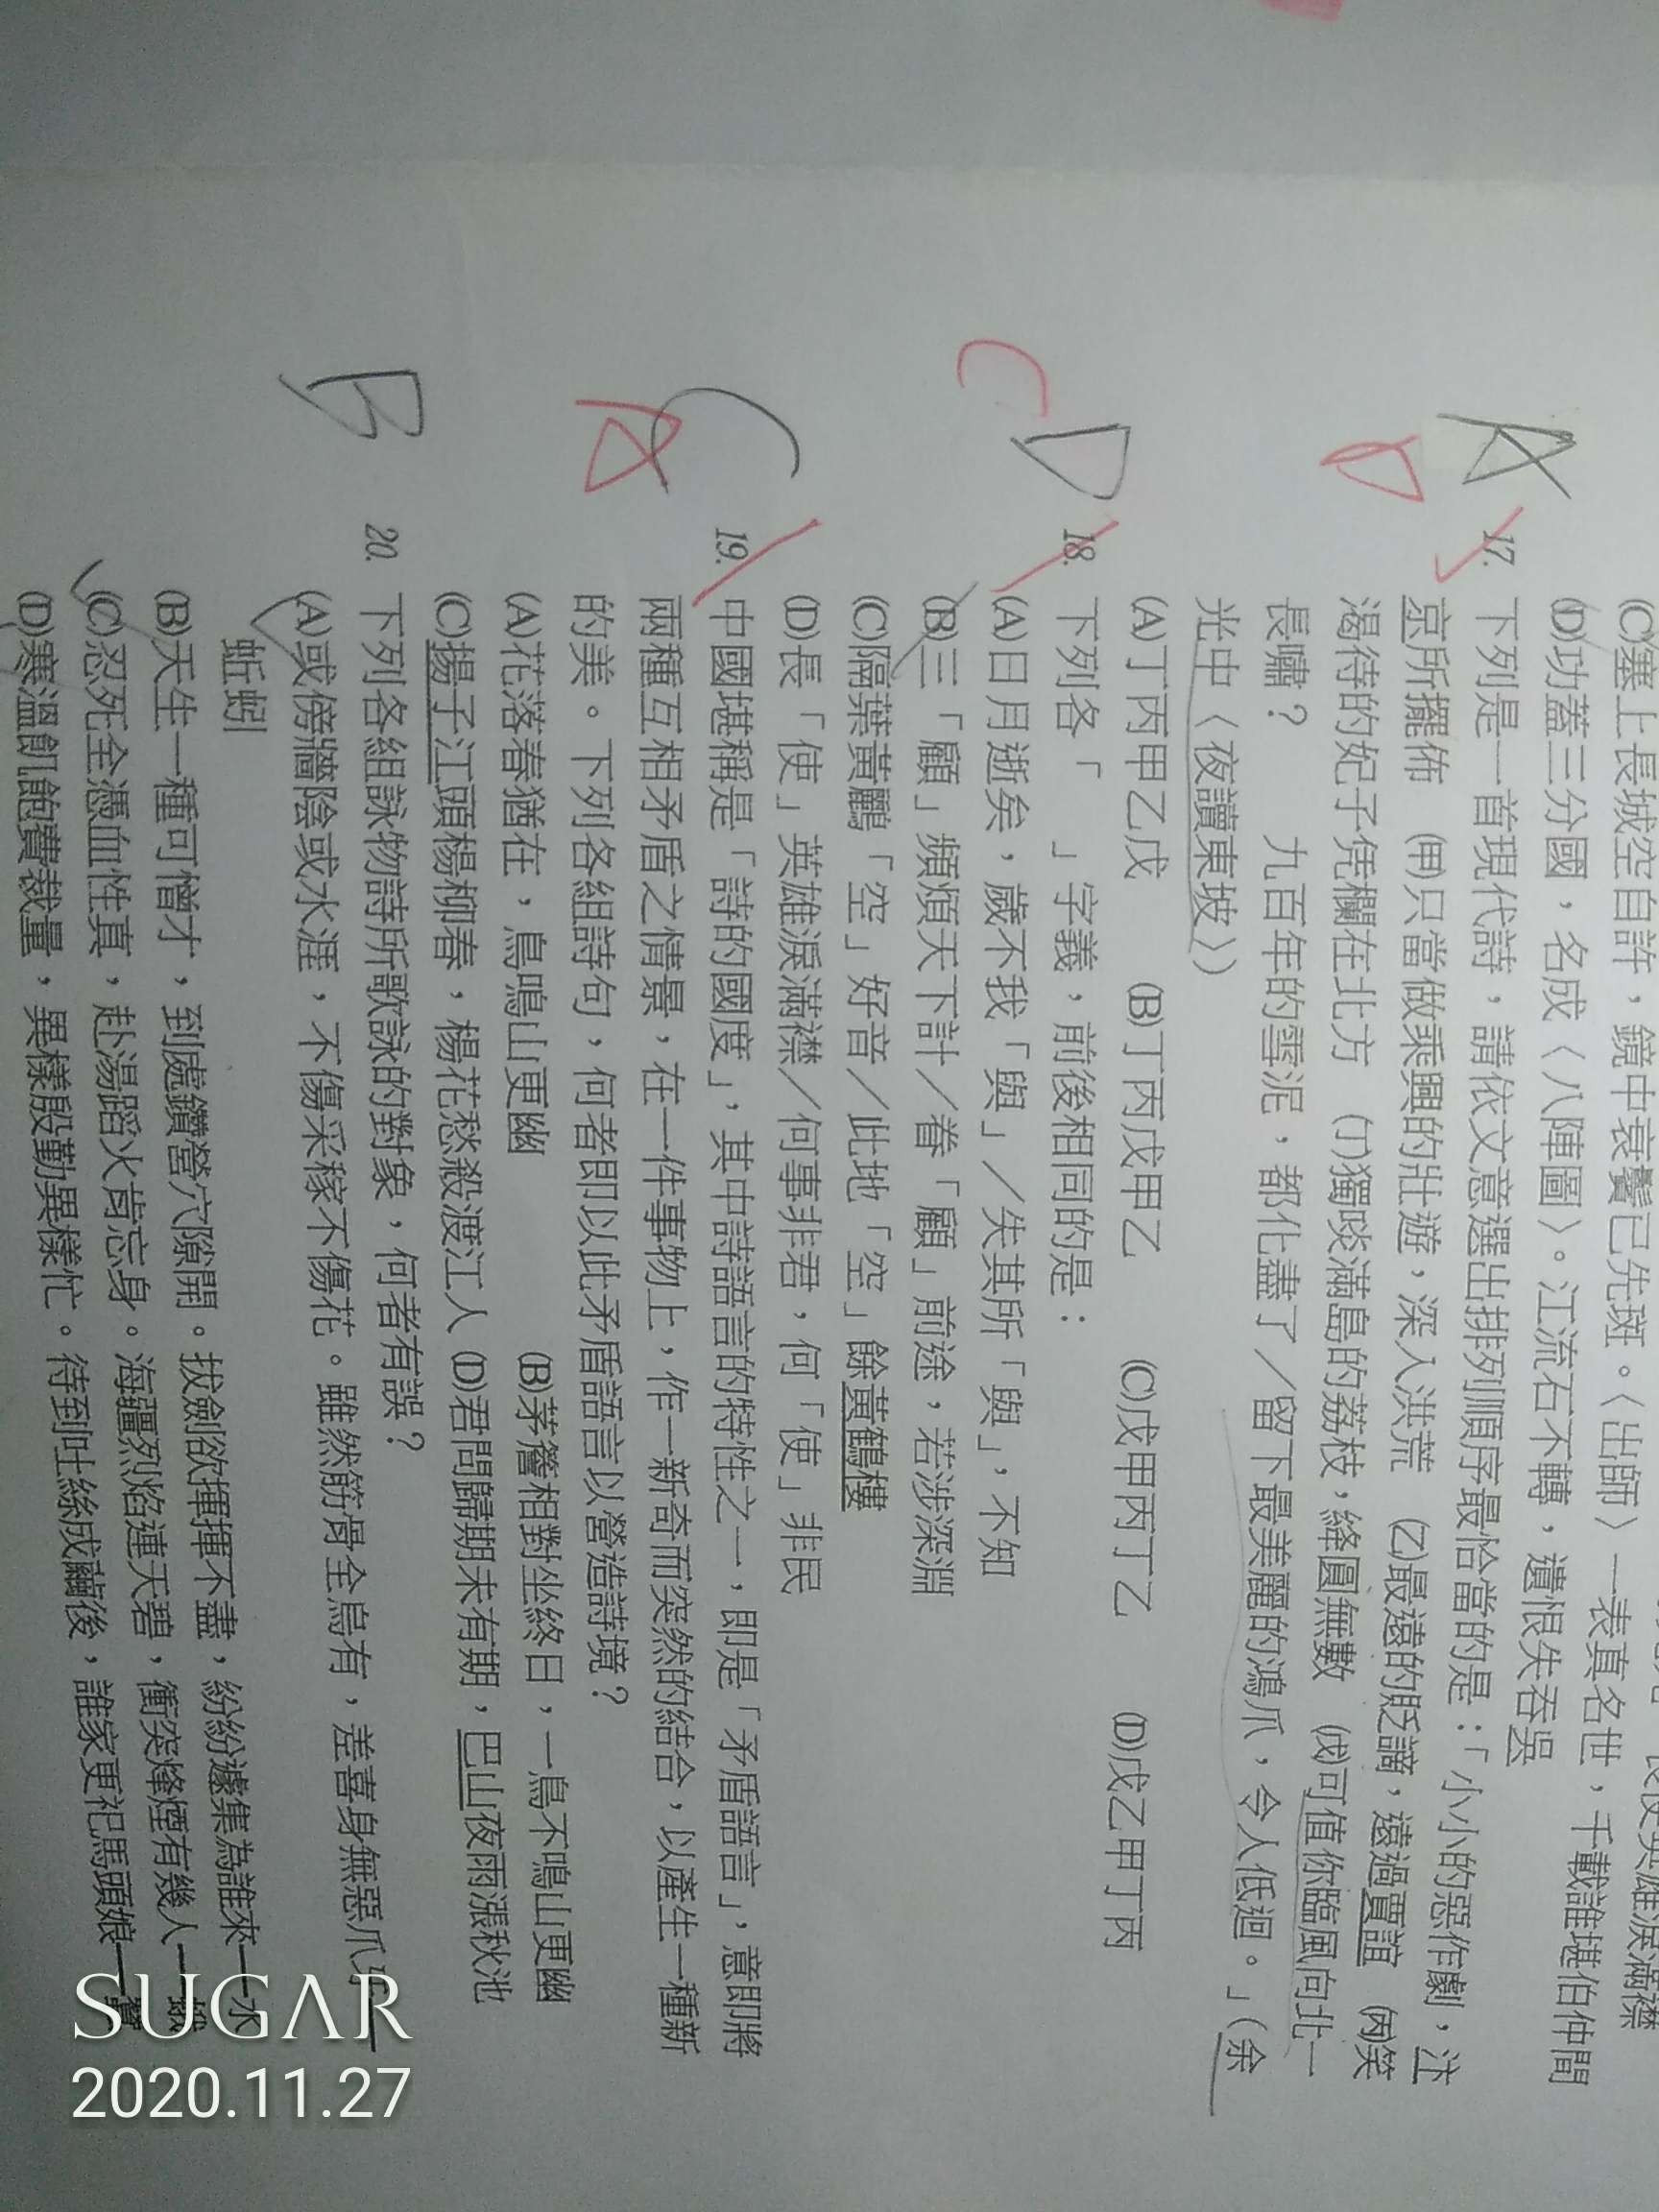 (C)塞上長城空自許，鏡中衰鬢已先斑。〈出師〉一表真名世，千載誰堪伯仲間
(D)功蓋三分國，名成〈八陣圖〉。江流石不轉，遺恨失吞吳
A
D
17. 下列是一首現代詩，請依文意選出排列順序最恰當的是：「小小的惡作劇，汴
京所擺佈　(甲)只當做乘興的壯遊，深入洪荒　(乙)最遠的貶謫，遠過賈誼　(丙)笑
渴待的妃子凭欄在北方　(丁)獨啖滿島的荔枝，絳圓無數　(戊)可值你臨風向北一
長嘯？　九百年的雪泥，都化盡了／留下最美麗的鴻爪，令人低迴。」（余
光中〈夜讀東坡〉）
(A)丁丙甲乙戊　(B)丁丙戊甲乙　(C)戊甲丙丁乙　(D)戊乙甲丁丙
D
C
18. 下列各「　」字義，前後相同的是：
(A)日月逝矣，歲不我「與」／失其所「與」，不知
(B)三「顧」頻煩天下計／眷「顧」前途，若涉深淵
(C)隔葉黃鸝「空」好音／此地「空」餘黃鶴樓
(D)長「使」英雄淚滿襟／何事非君，何「使」非民
C
A
19. 中國堪稱是「詩的國度」，其中詩語言的特性之一，即是「矛盾語言」，意即將
兩種互相矛盾之情景，在一件事物上，作一新奇而突然的結合，以產生一種新
的美。下列各組詩句，何者即以此矛盾語言以營造詩境？
(A)花落春猶在，鳥鳴山更幽　(B)茅簷相對坐終日，一鳥不鳴山更幽
(C)揚子江頭楊柳春，楊花愁殺渡江人　(D)君問歸期未有期，巴山夜雨漲秋池
B
20. 下列各組詠物詩所歌詠的對象，何者有誤？
(A)或傍牆陰或水涯，不傷采稼不傷花。雖然筋骨全烏有，差喜身無惡爪牙—
蚯蚓
(B)天生一種可憎才，到處鑽營穴隙開。拔劍欲揮揮不盡，紛紛遽集為誰來—水
(C)忍死全憑血性真，赴湯蹈火肯忘身。海疆烈焰連天碧，衝突烽煙有幾人—蛾
(D)寒溫飢飽費裁量，異樣殷勤異樣忙。待到吐絲成繭後，誰家更祀馬頭娘—蠶
SUGAR
2020.11.27